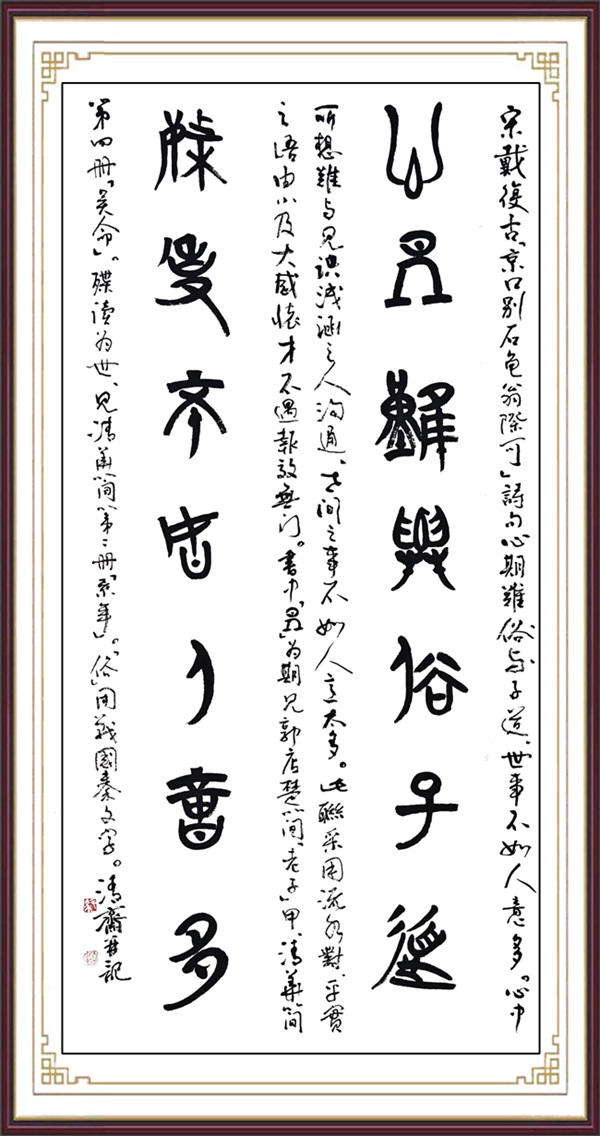 宋戴復古「京口别石龟翁際可」詩句心期難俗与子道、世事不如人意多。「心中
心期難與俗子道
所想難与見識浅涵之人沟通、世间之事不如人意太多。此聯采用流水對、平實
之语由小及大感懷才不遇報效無门。書中「」为期見郭店楚简「老子」甲、清華简
殜事不女人意多
第四册「吴命」。殜读为世、見清華简第二册「系年」。「俗」用戰國秦文字。清齋并記